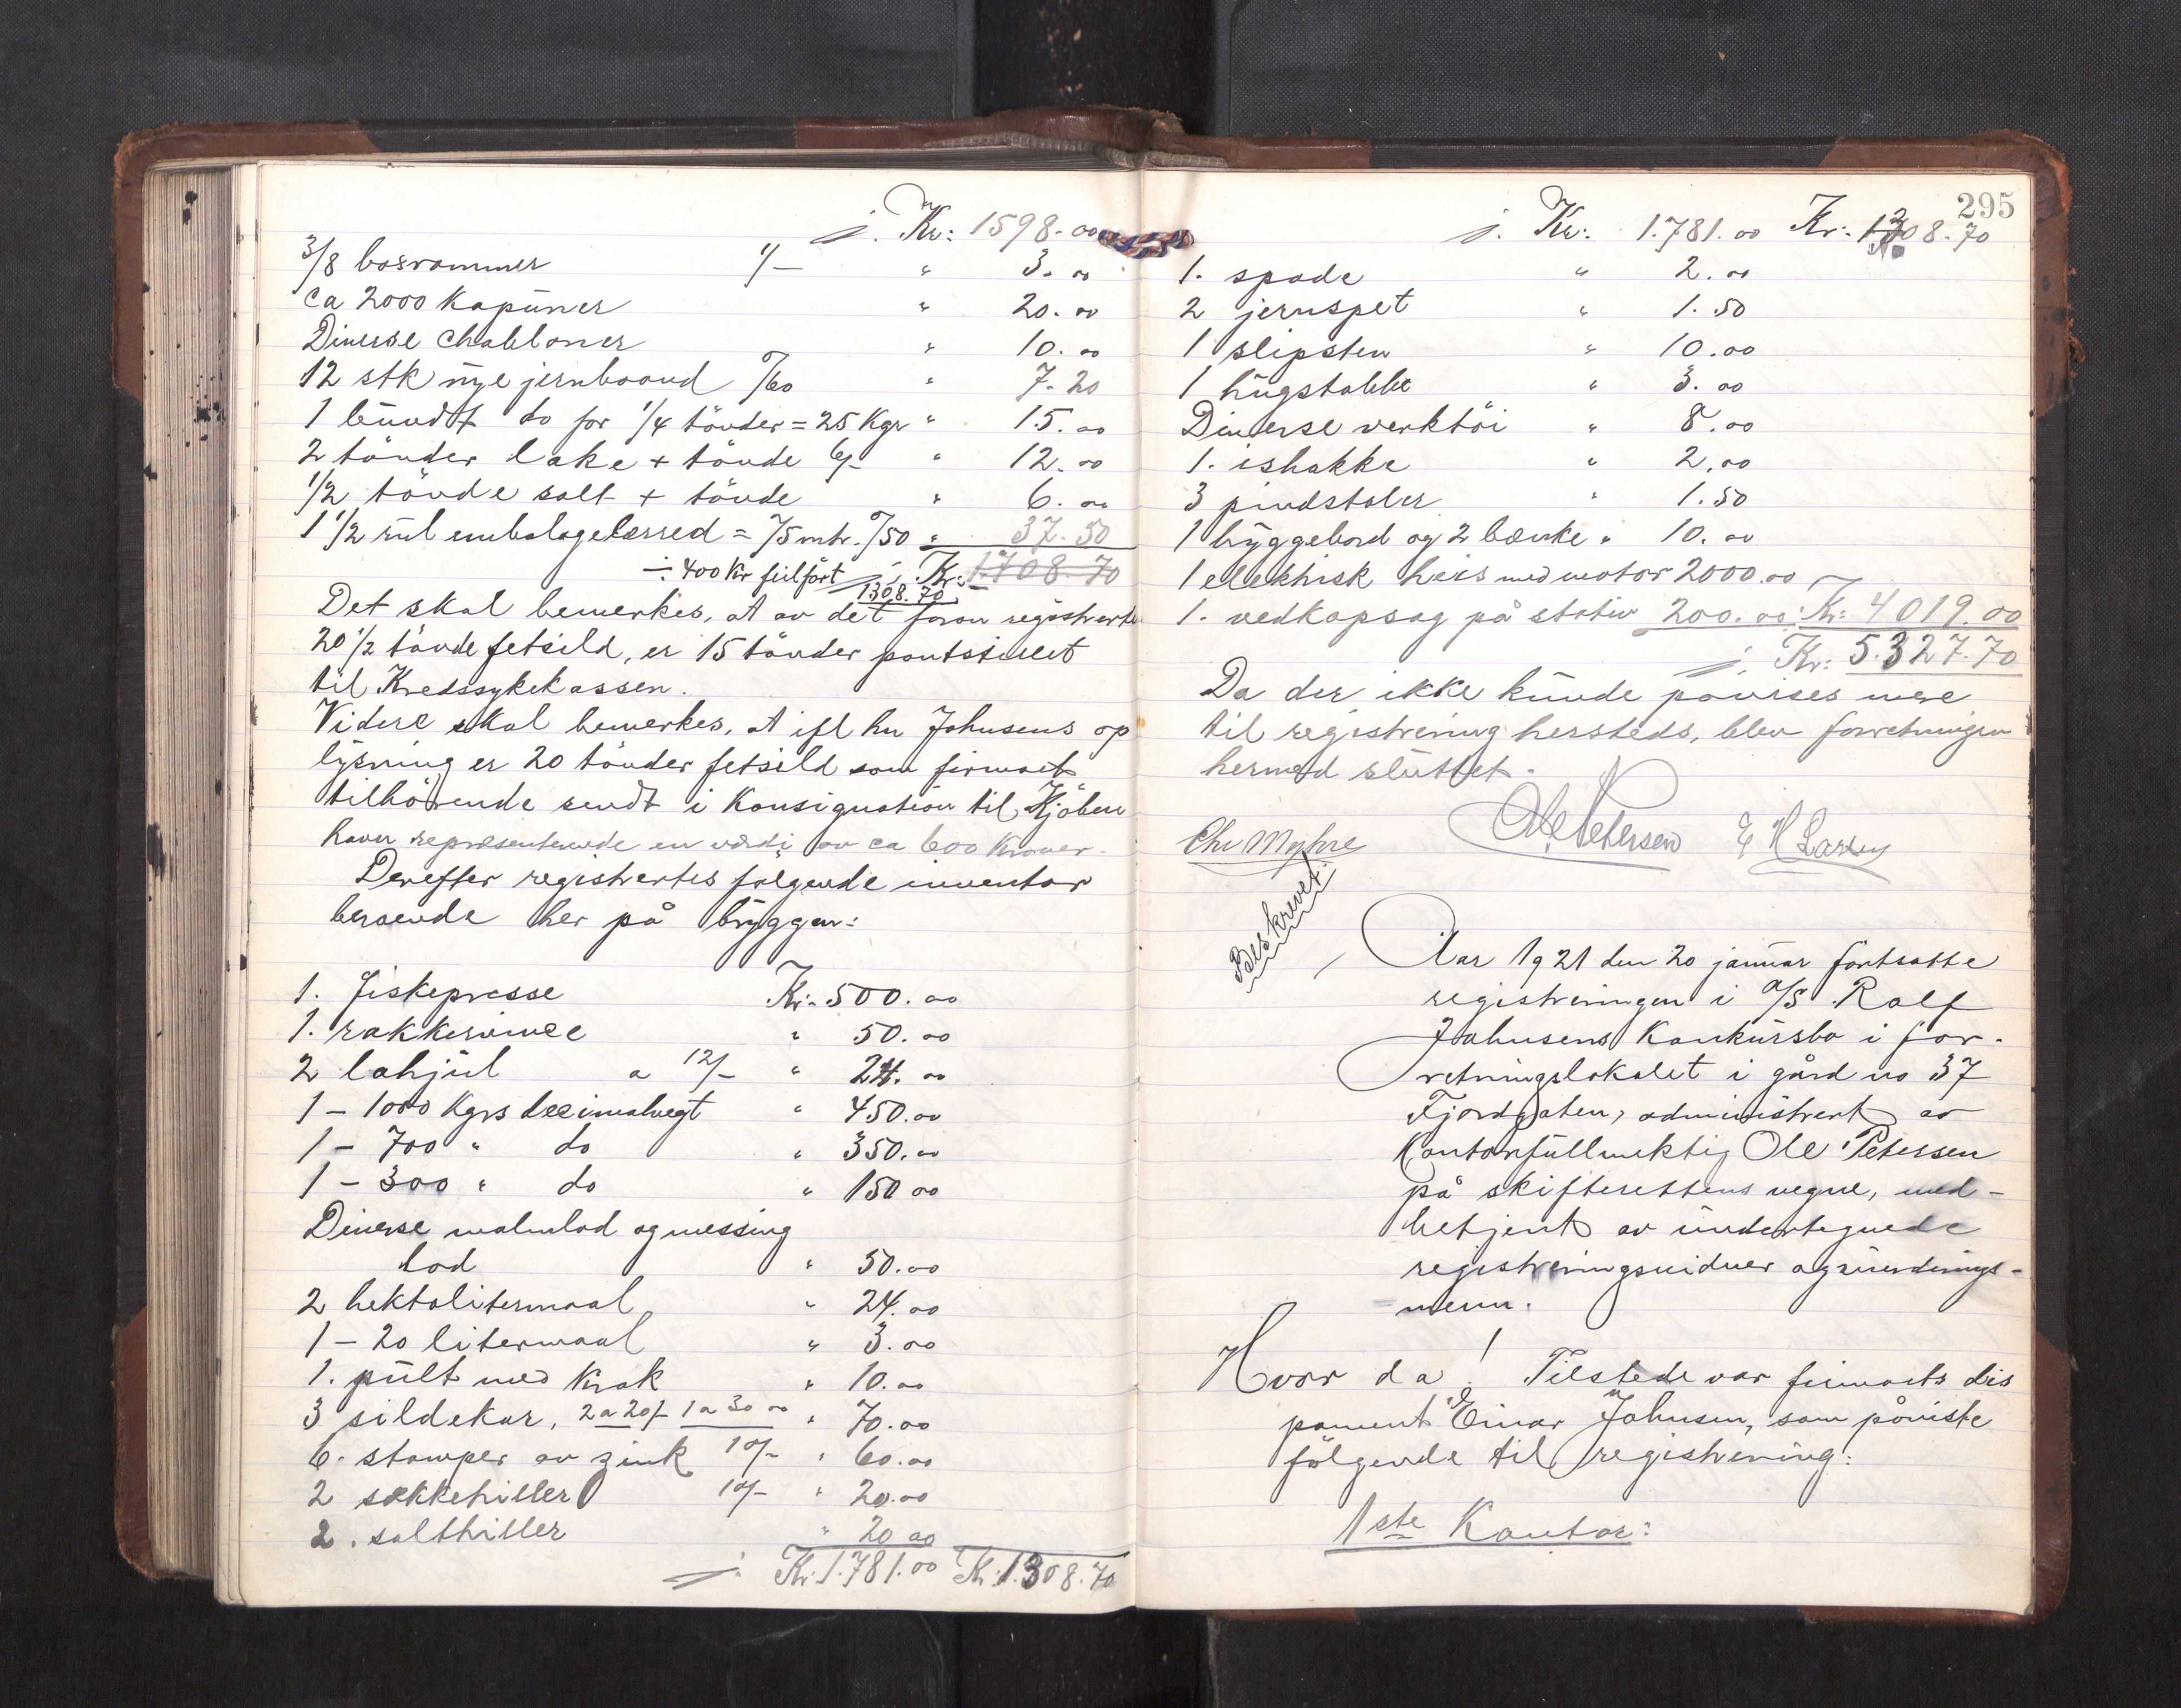 j. Kr: 1598.00
3/8 bosrammer 1/- " 3.00
ca 2000 Kapüner " 20.00
Diverse chabloner " 10.00
12 stk nye jernbaand /60 " 7.20
1 bündt do for 1/4 tönder = 25 Kgr " 15.00
2 tönder lake + tönde 6/- " 12.00
1/2 tönde salt + tönde " 6.00
1 1/2 rül embalagelærred = 75 mtr. /50 " 37.50
÷ 400 Kr feilfört j. Kr: 1708.70
1308.70
Det skal bemerkes, at av det foran registrerte
20 1/2 tönde fetsild, er 15 tönder pantstillet
til Kredssykekassen.
Videre skal bemerkes, at ifl hr Johnsens op
lysning er 20 tönder fetsild som firmaet
tilhörende sendt i Konsignation til Kjöben
havn repræsenterende en værdi av ca 600 Kroner.
Derefter registrertes følgende inventar
beroende her på bryggen:
1. fiskepresse Kr. 500.00
1. rakkerive " 50.00
2 lahjül a 12/- " 24.00
1 - 1000 Kgrs decimalvegt " 450.00
1 - 700 " do " 350.00
1 - 300 " do " 150 00
Diverse malmlod og messing
lod " 50.00
2 hektolitermaal " 24.00
1 - 20 litermaal " 3.00
1. pült med Krak " 10.00
3 sildekar, 2 a 20/- 1 a 30 00 " 70.00
6. stamper av zink 10/- " 60.00
2 sækkehiller 10/- " 20.00
2. salthiller " 20 00
j. Kr. 1.781.00 Kr. 1308.70
295
j. Kr: 1.781.00 Kr: 1308.70
1. spade " 2.00
2 jernspet " 1.50
1 slipsten " 10.00
1 hügstabbe " 3.00
Diverse verktöi " 8.00
1. ishakke " 2,00
3 pindstoler " 1.50
1 byggebord og 2 bænke " 10.00
1 elektrisk heis med motor 2000.00
1. vedkapsag på stativ 200.00 Kr: 4019.00
j. Kr: 5.327.70
Da der ikke künde påvises mere
til registrering hersteds, blev forretningen
hermed slüttet.
Chr Myhre Ole Petersen E H Larsen
Beskrevet.
Aar 1921 den 20 janüar fortsatte
registreringen i A/S Rolf
Johnsens Konkürsbo i for-
retningslokalet i gård no 37
Fjordgaten, administrert av
Kontorfüllmektig Ole Petersen
på skifterettens vegne, med-
betjent av ündertegnede
registreringsvidner og vürderings-
menn.
Hvor da! Tilstede var firmaets dis
ponent Einar Johnsen, som påviste
følgende til registrering:
1ste Kontor: